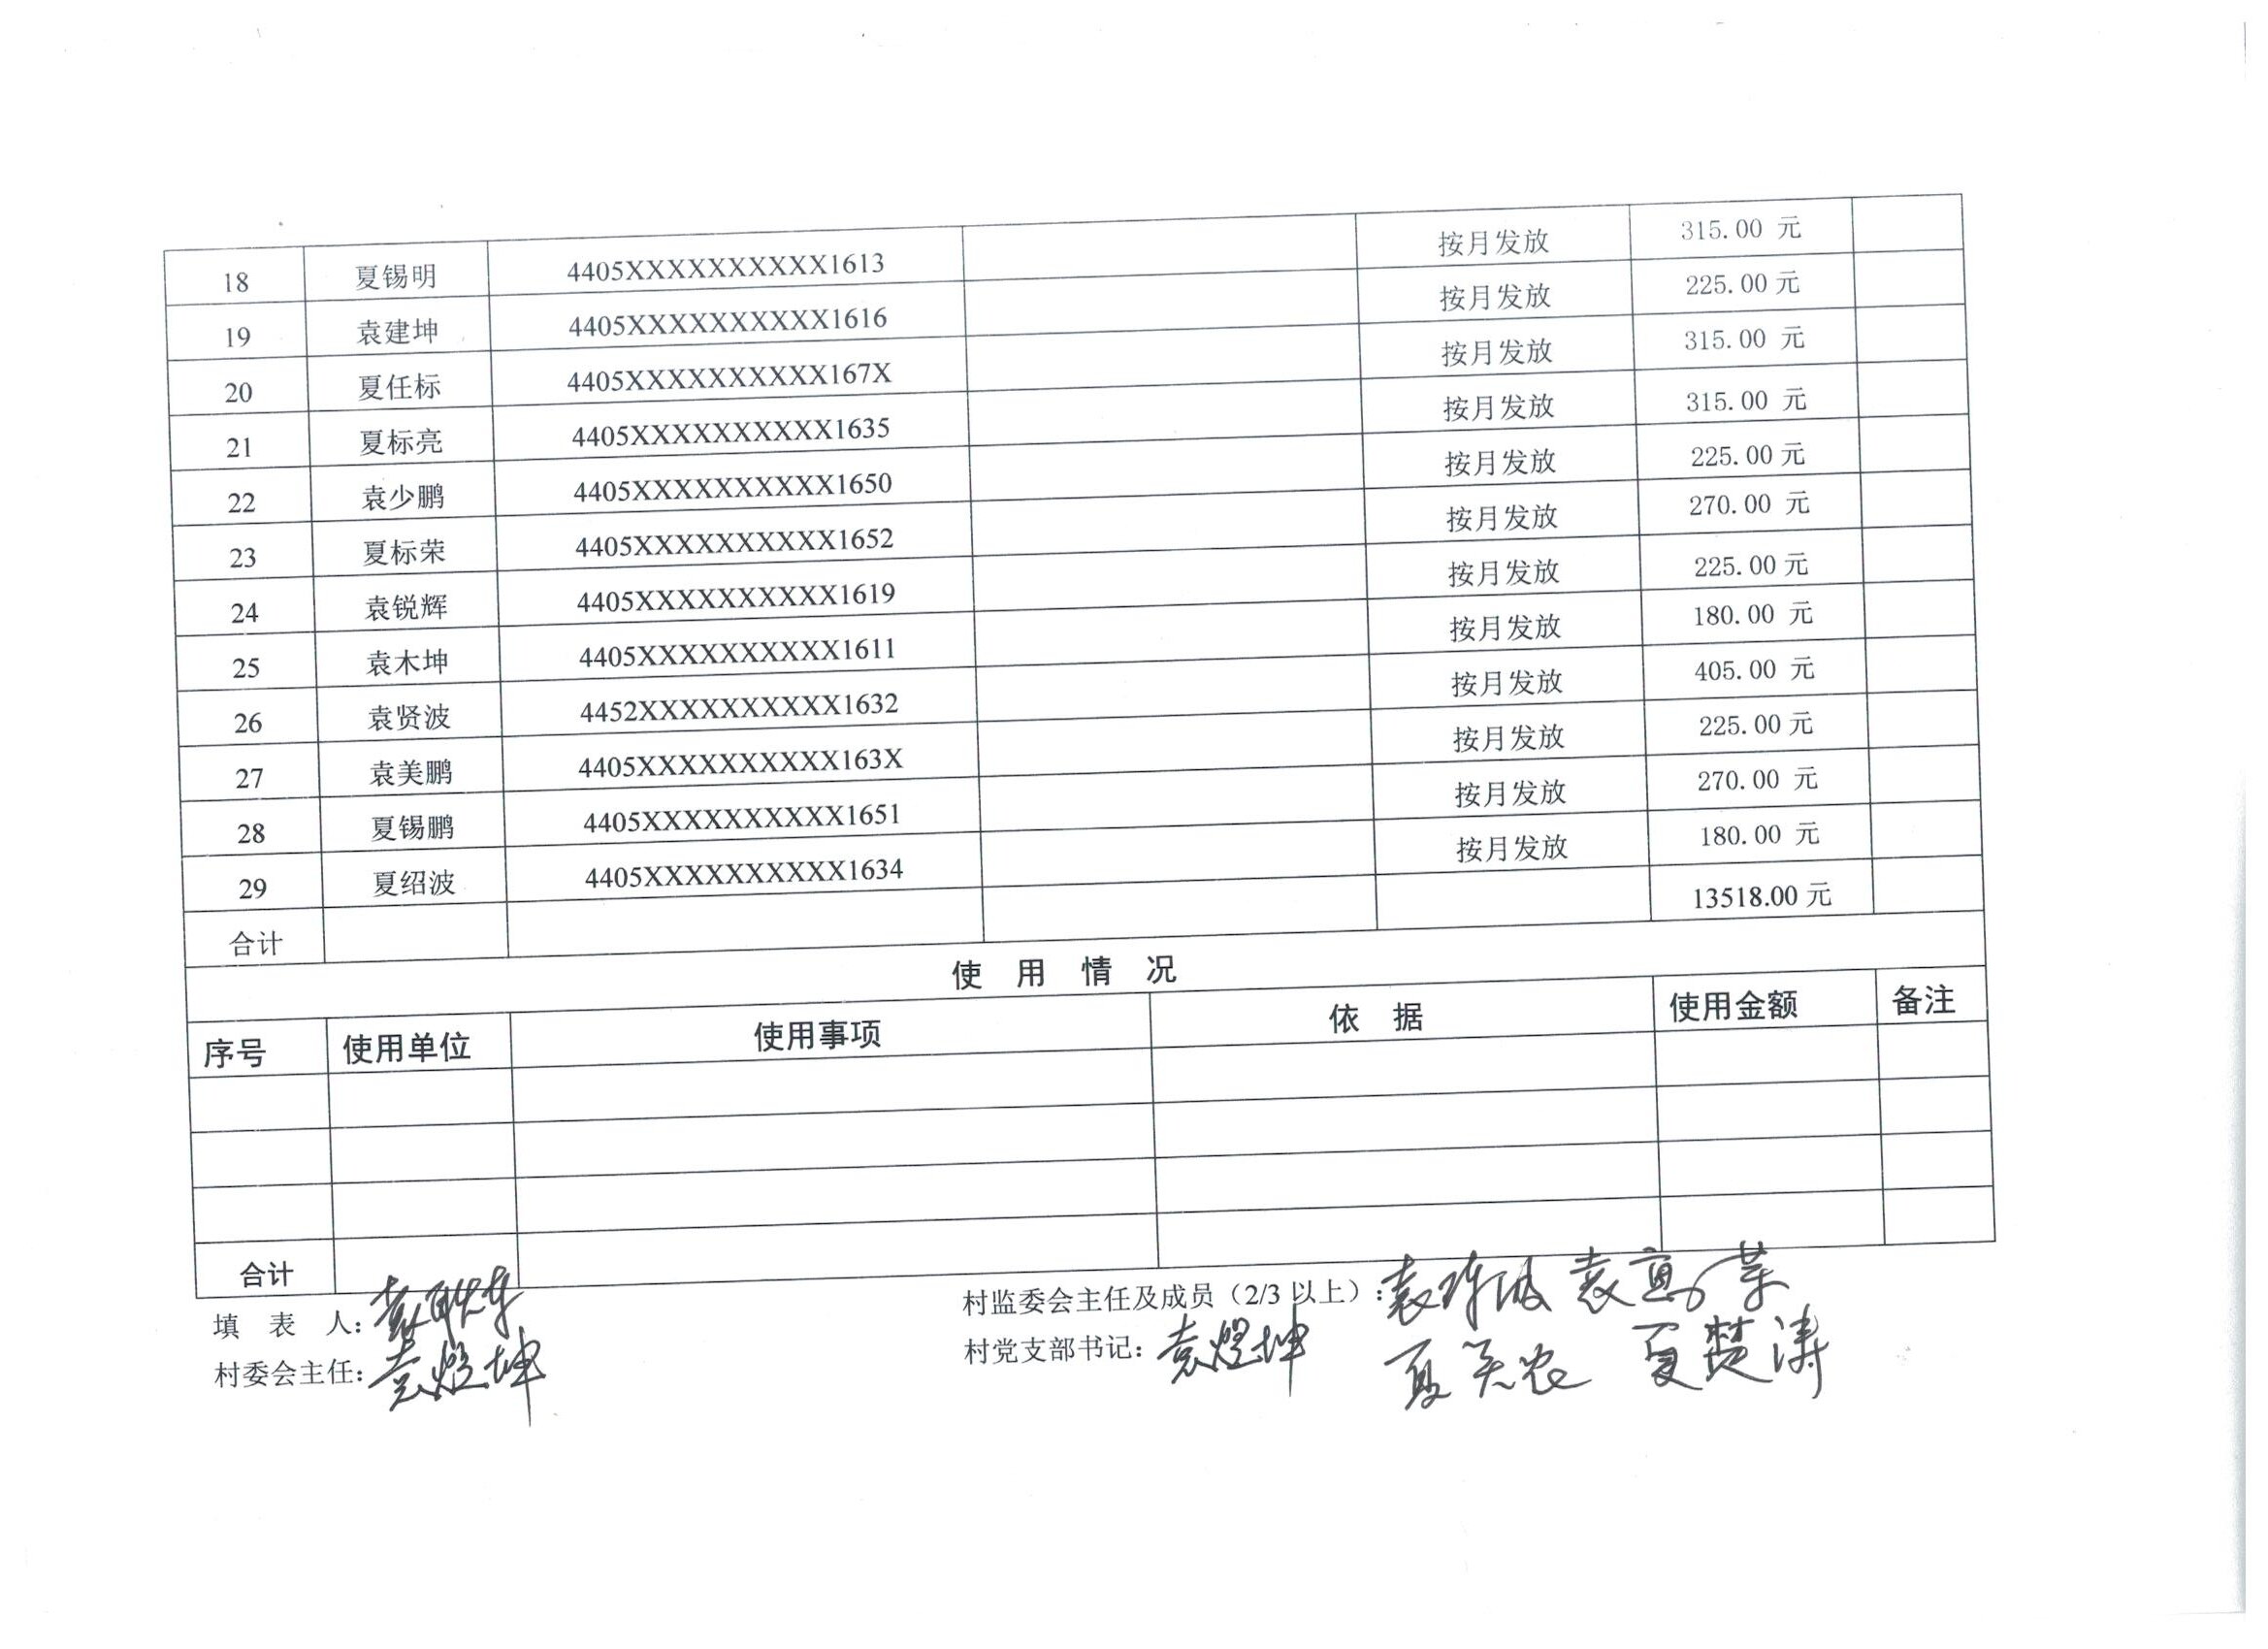 18 夏锡明 4405XXXXXXXXXX1613 按月发放 315.00 元
19 袁建坤 4405XXXXXXXXXX1616 按月发放 225.00元
20 夏任标 4405XXXXXXXXXX167X 按月发放 315.00 元
21 夏标亮 4405XXXXXXXXXX1635 按月发放 315.00 元
22 袁少鹏 4405XXXXXXXXXX1650 按月发放 225.00元
23 夏标荣 4405XXXXXXXXXX1652 按月发放 270.00 元
24 袁锐辉 4405XXXXXXXXXX1619 按月发放 225.00元
25 袁木坤 4405XXXXXXXXXX1611 按月发放 180.00 元
26 袁贤波 4452XXXXXXXXXX1632 按月发放 405.00 元
27 袁美鹏 4405XXXXXXXXXX163X 按月发放 225.00元
28 夏锡鹏 4405XXXXXXXXXX1651 按月发放 270.00 元
29 夏绍波 4405XXXXXXXXXX1634 按月发放 180.00 元
合计 13518.00元
使 用 情 况
序号 使用单位 使用事项 依 据 使用金额 备注
合计
填 表 人： 村监委会主任及成员（2/3 以上）：
村委会主任：袁煜坤 村党支部书记：袁煜坤 夏楚涛